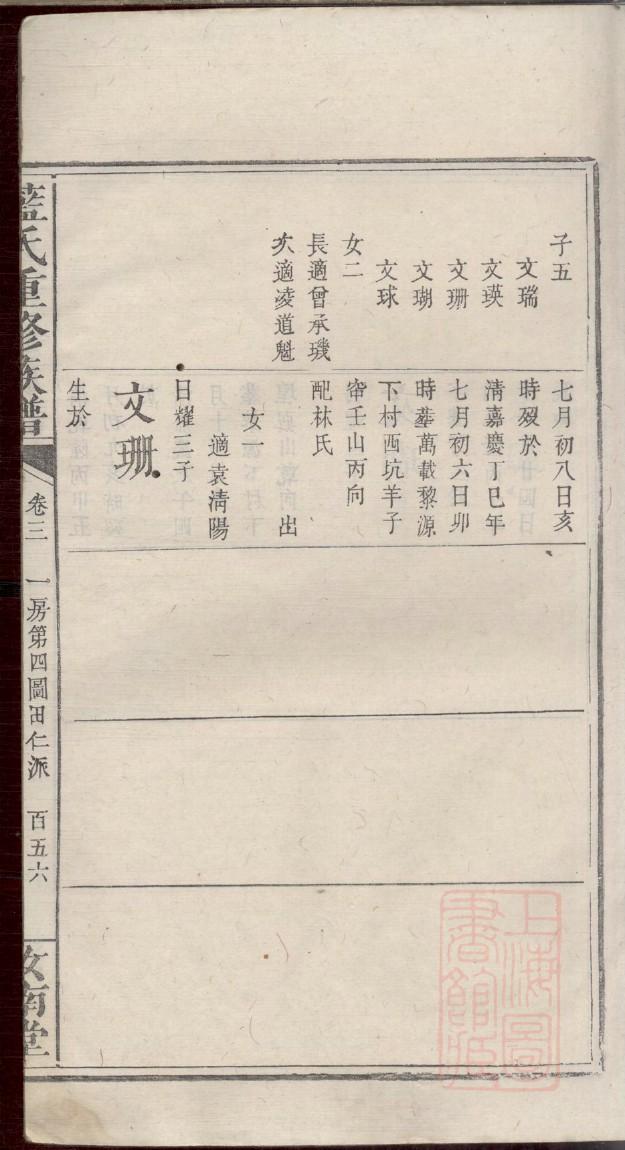 子五
文瑞
文瑛
文珊
文瑚
文球
女二
長適曾承璣
次適凌道魁
七月初八日亥
時歿於
清嘉慶丁巳年
七月初六日卯
時塟萬載黎源
下村西坑羊子
窩壬山丙向
配林氏
出
女一
適袁清陽
日耀三子
文珊
生於
藍氏重修族譜
卷三
一房第四圖田仁派
百五六
汝南堂
上海圖
書館藏